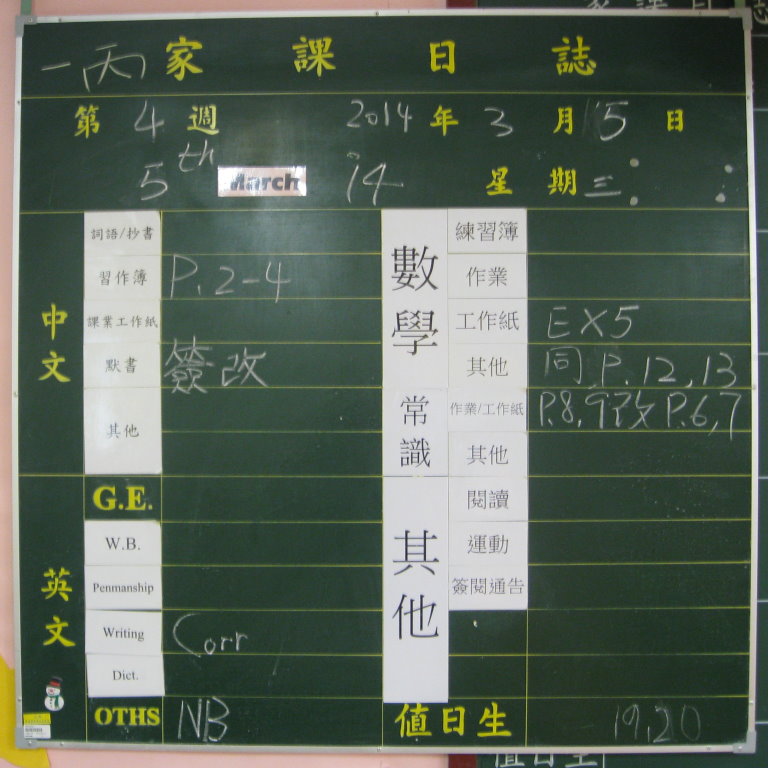 一丙 家課日誌
第 4 週 2014 年 3 月 5 日
5th March 14 星期三
中文
詞語/抄書
習作簿 P. 2-4
課業工作紙
默書 簽改
其他
英文
G.E.
W.B.
Penmanship
Writing Corr
Dict.
OTHS NB
數學
練習簿
作業
工作紙 EX5
其他 同 P. 12, 13
常識
作業/工作紙 P.8, 9 改 P.6, 7
其他
其他
閱讀
運動
簽閱通告
值日生 19, 20
值日生